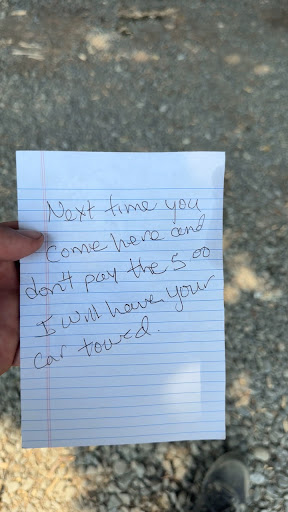 Next time you
come here and
don't pay the 5 00
I will have your
car towed.